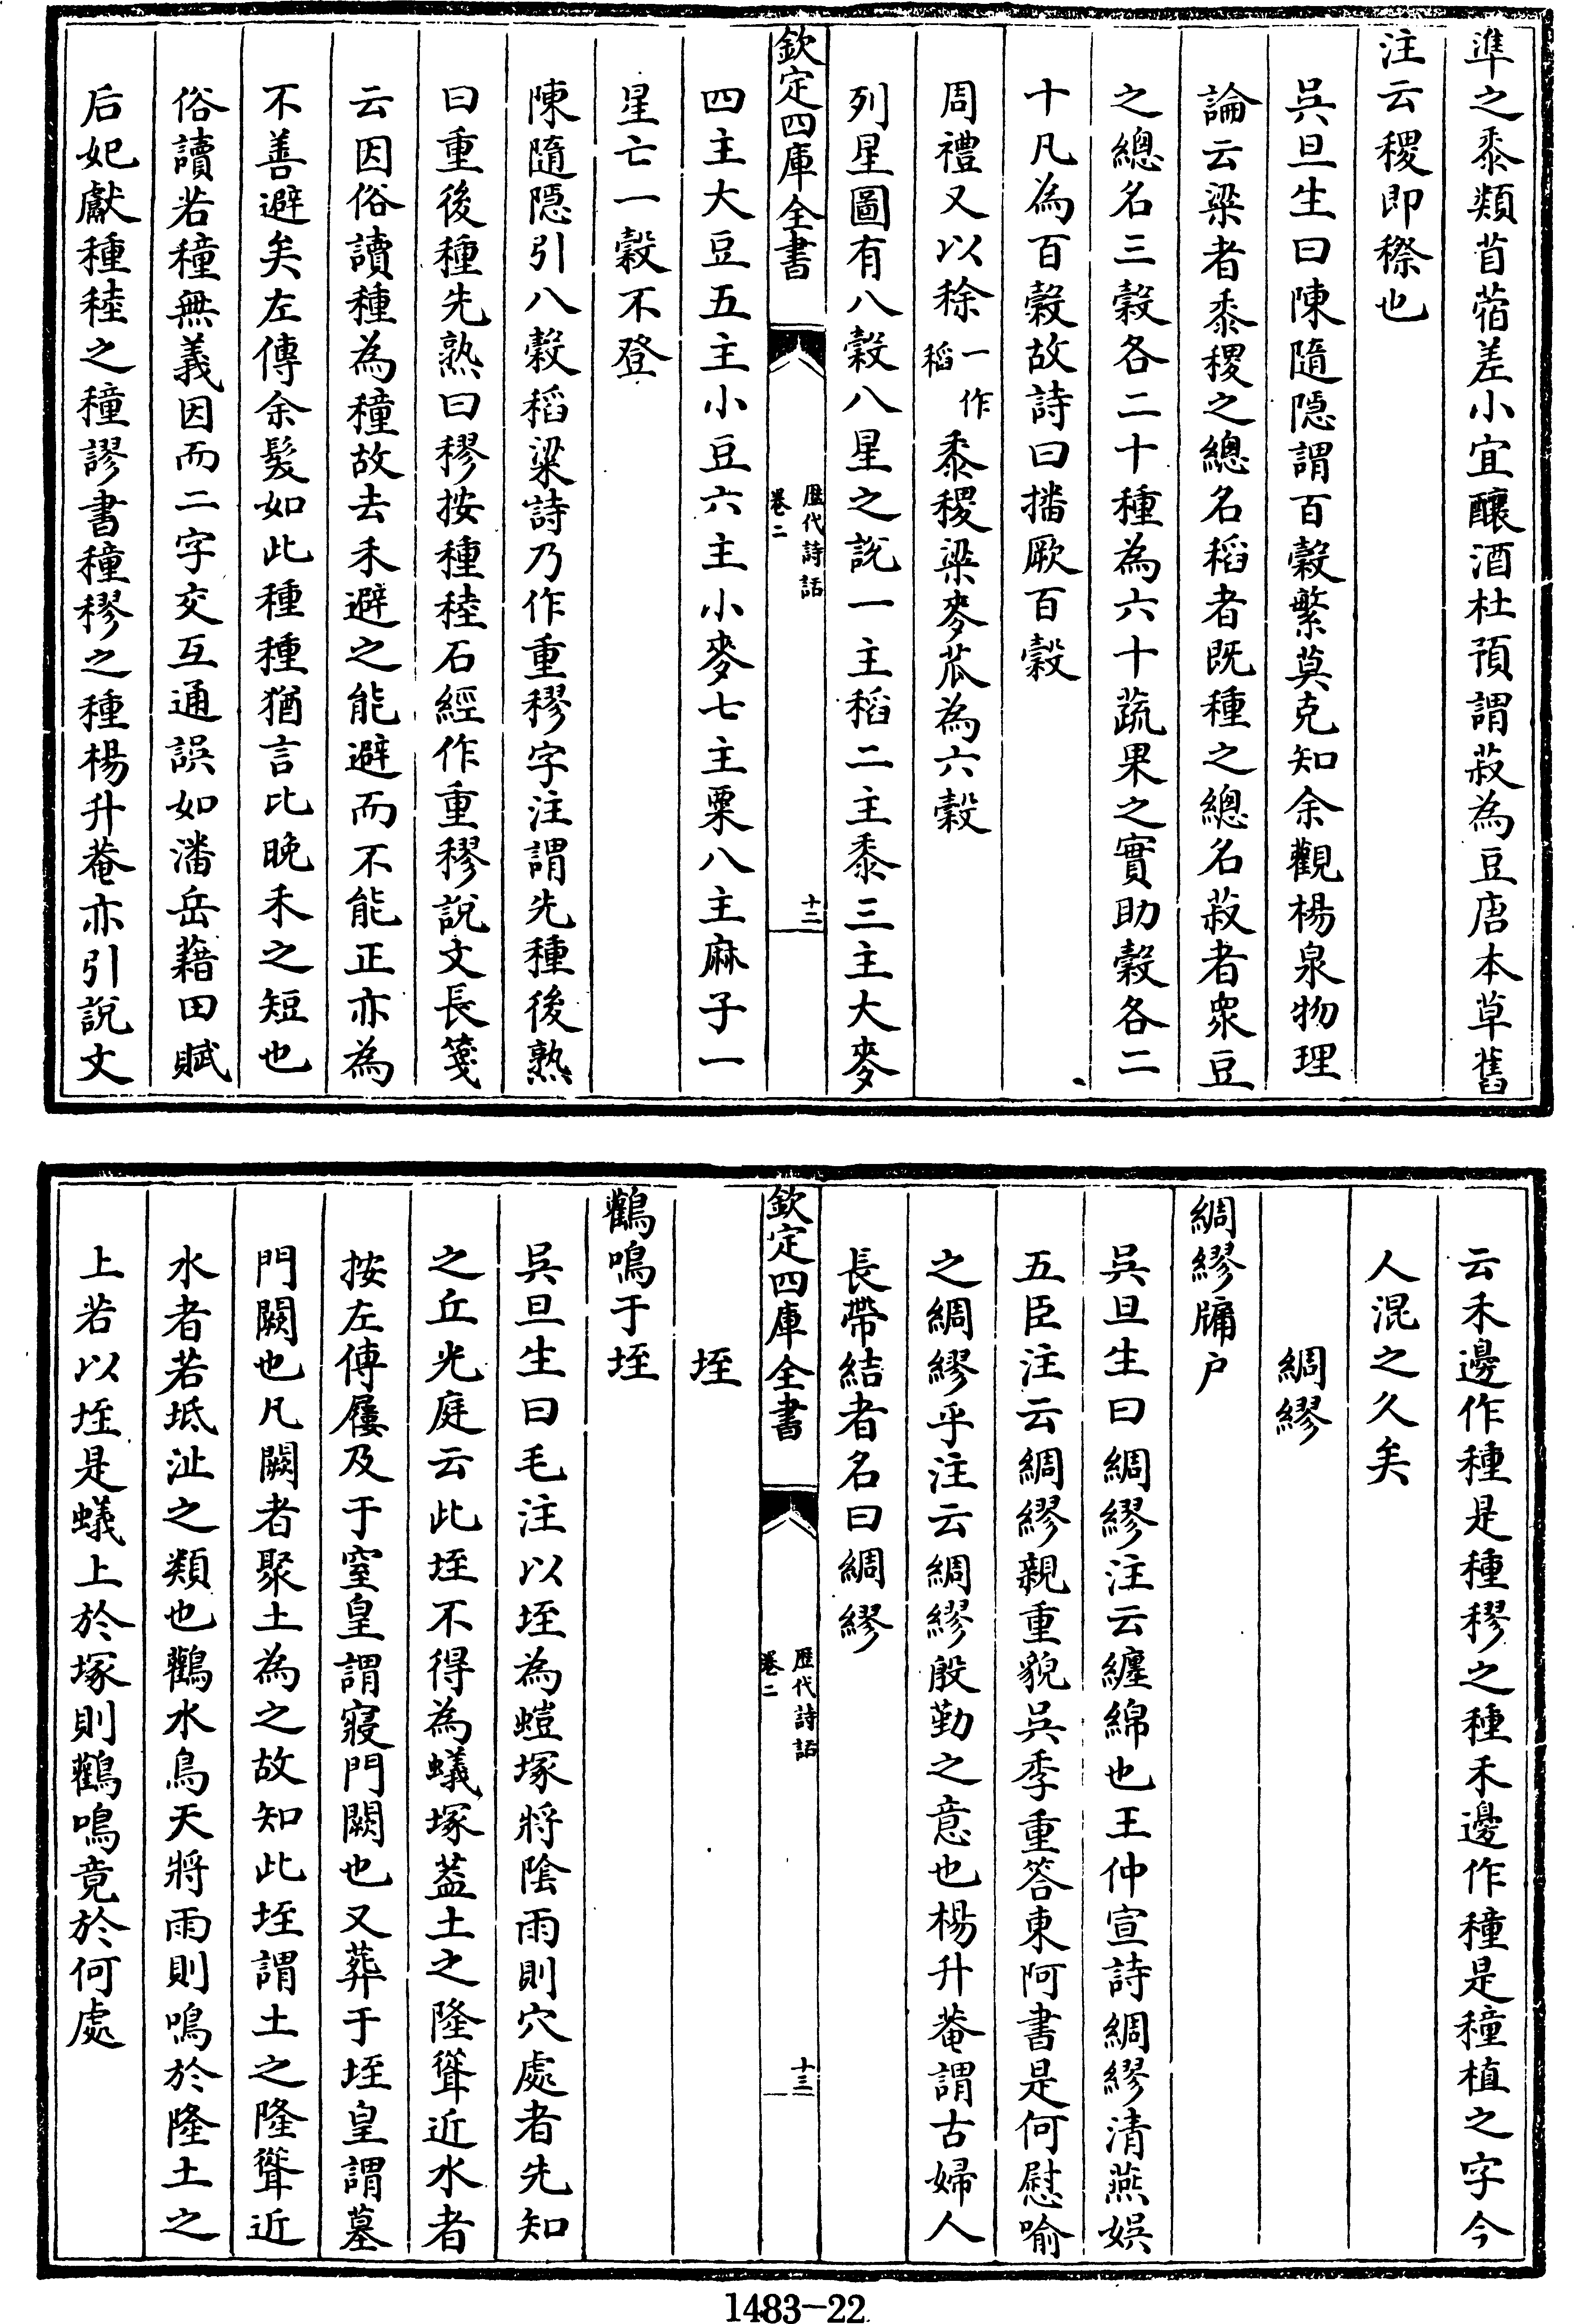 準之黍類苜蓿差小宜釀酒杜預謂菽為豆唐本草舊
注云稷即穄也
吳旦生曰陳隨隱謂百穀繁莫克知余觀楊泉物理
論云粱者黍稷之總名稻者既種之總名菽者衆豆
之總名三穀各二十種為六十蔬果之實助穀各二
十凡為百穀故詩曰播厥百穀
周禮又以稌一作稻黍稷粱麥苽為六穀
列星圖有八穀八星之說一主稻二主黍三主大麥
欽定四庫全書
歷代詩話
卷二
十二
四主大豆五主小豆六主小麥七主粟八主麻子一
星亡一穀不登
陳隨隱引八穀稻粱詩乃作重穋字注謂先種後熟
曰重後種先熟曰穋按種稑石經作重穋說文長箋
云因俗讀種為穜故去禾避之能避而不能正亦為
不善避矣左傳余髮如此種種猶言比晚禾之短也
俗讀若穜無義因而二字交互通誤如潘岳藉田賦
后妃獻種稑之穜謬書穜穋之種楊升菴亦引說文
云禾邊作種是種穋之種禾邊作穜是穜植之字今
人混之久矣
綢繆
綢繆牖户
吳旦生曰綢繆注云纏綿也王仲宣詩綢繆清燕娛
五臣注云綢繆親重貌吳季重答東阿書是何慰喻
之綢繆乎注云綢繆殷勤之意也楊升菴謂古婦人
長帶結者名曰綢繆
欽定四庫全書
歷代詩話
卷二
十三
垤
鸛鳴于垤
吳旦生曰毛注以垤為螘塚將陰雨則穴處者先知
之丘光庭云此垤不得為蟻塚蓋土之隆聳近水者
按左傳屨及于窒皇謂寢門闕也又葬于垤皇謂墓
門闕也凡闕者聚土為之故知此垤謂土之隆聳近
水者若坻沚之類也鸛水鳥天將雨則鳴於隆土之
上若以垤是蟻上於塚則鸛鳴竟於何處
1483-22